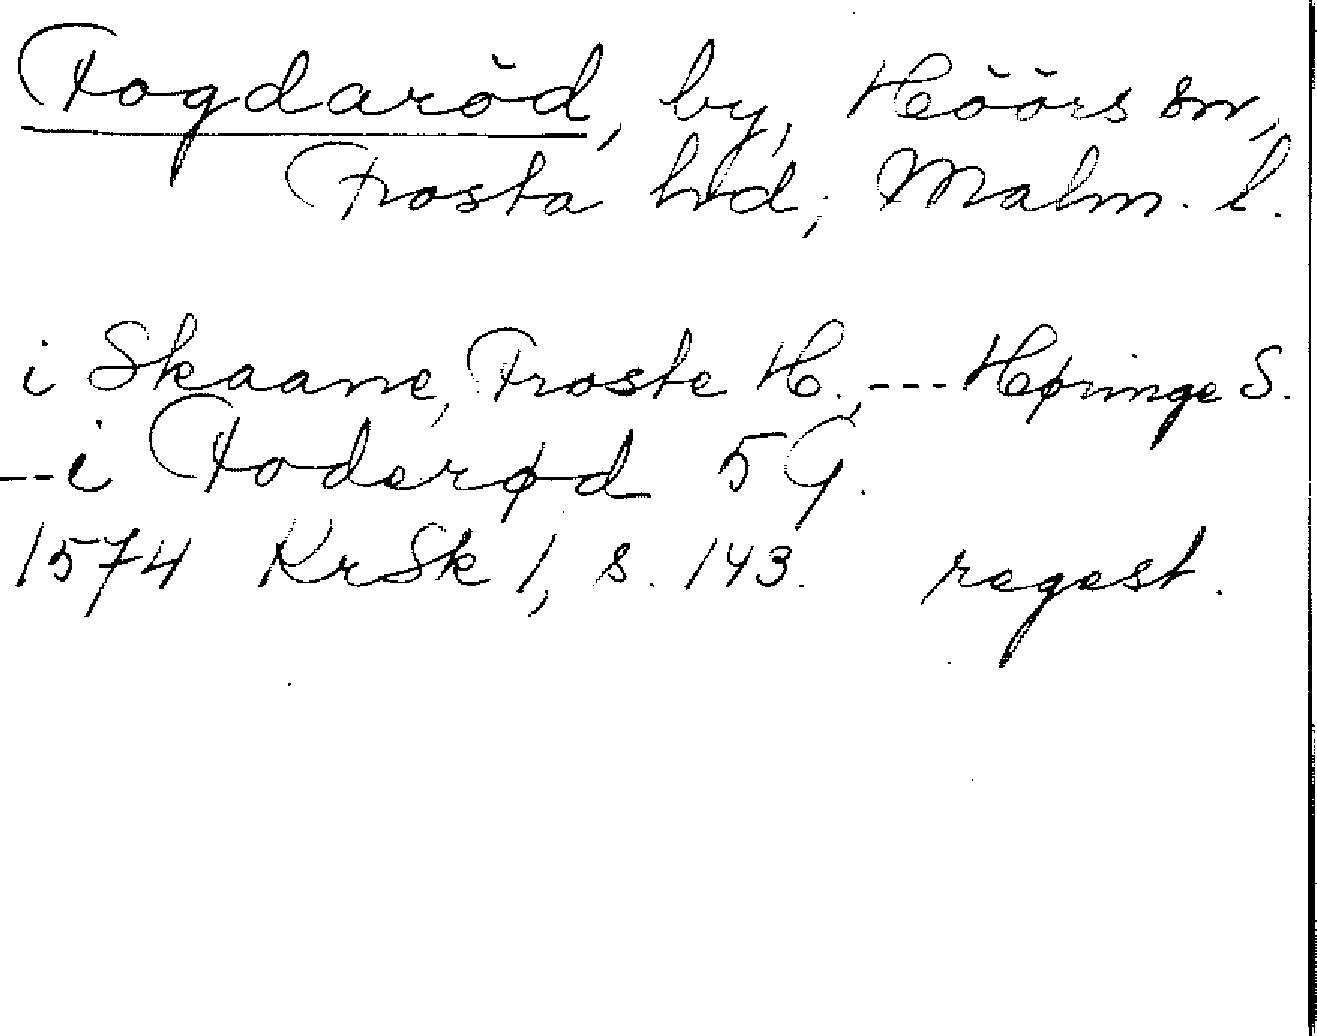 Fogdaröd, by, Höörs sn,
Frosta hd, Malm. l.
i Skaane, Froste H., --- Høringe S.
-- i Foderød 5 G.
1574 KrSk 1, s. 143. regest.